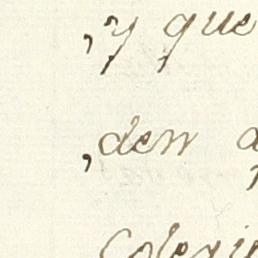 , y que
, den a
Colegi